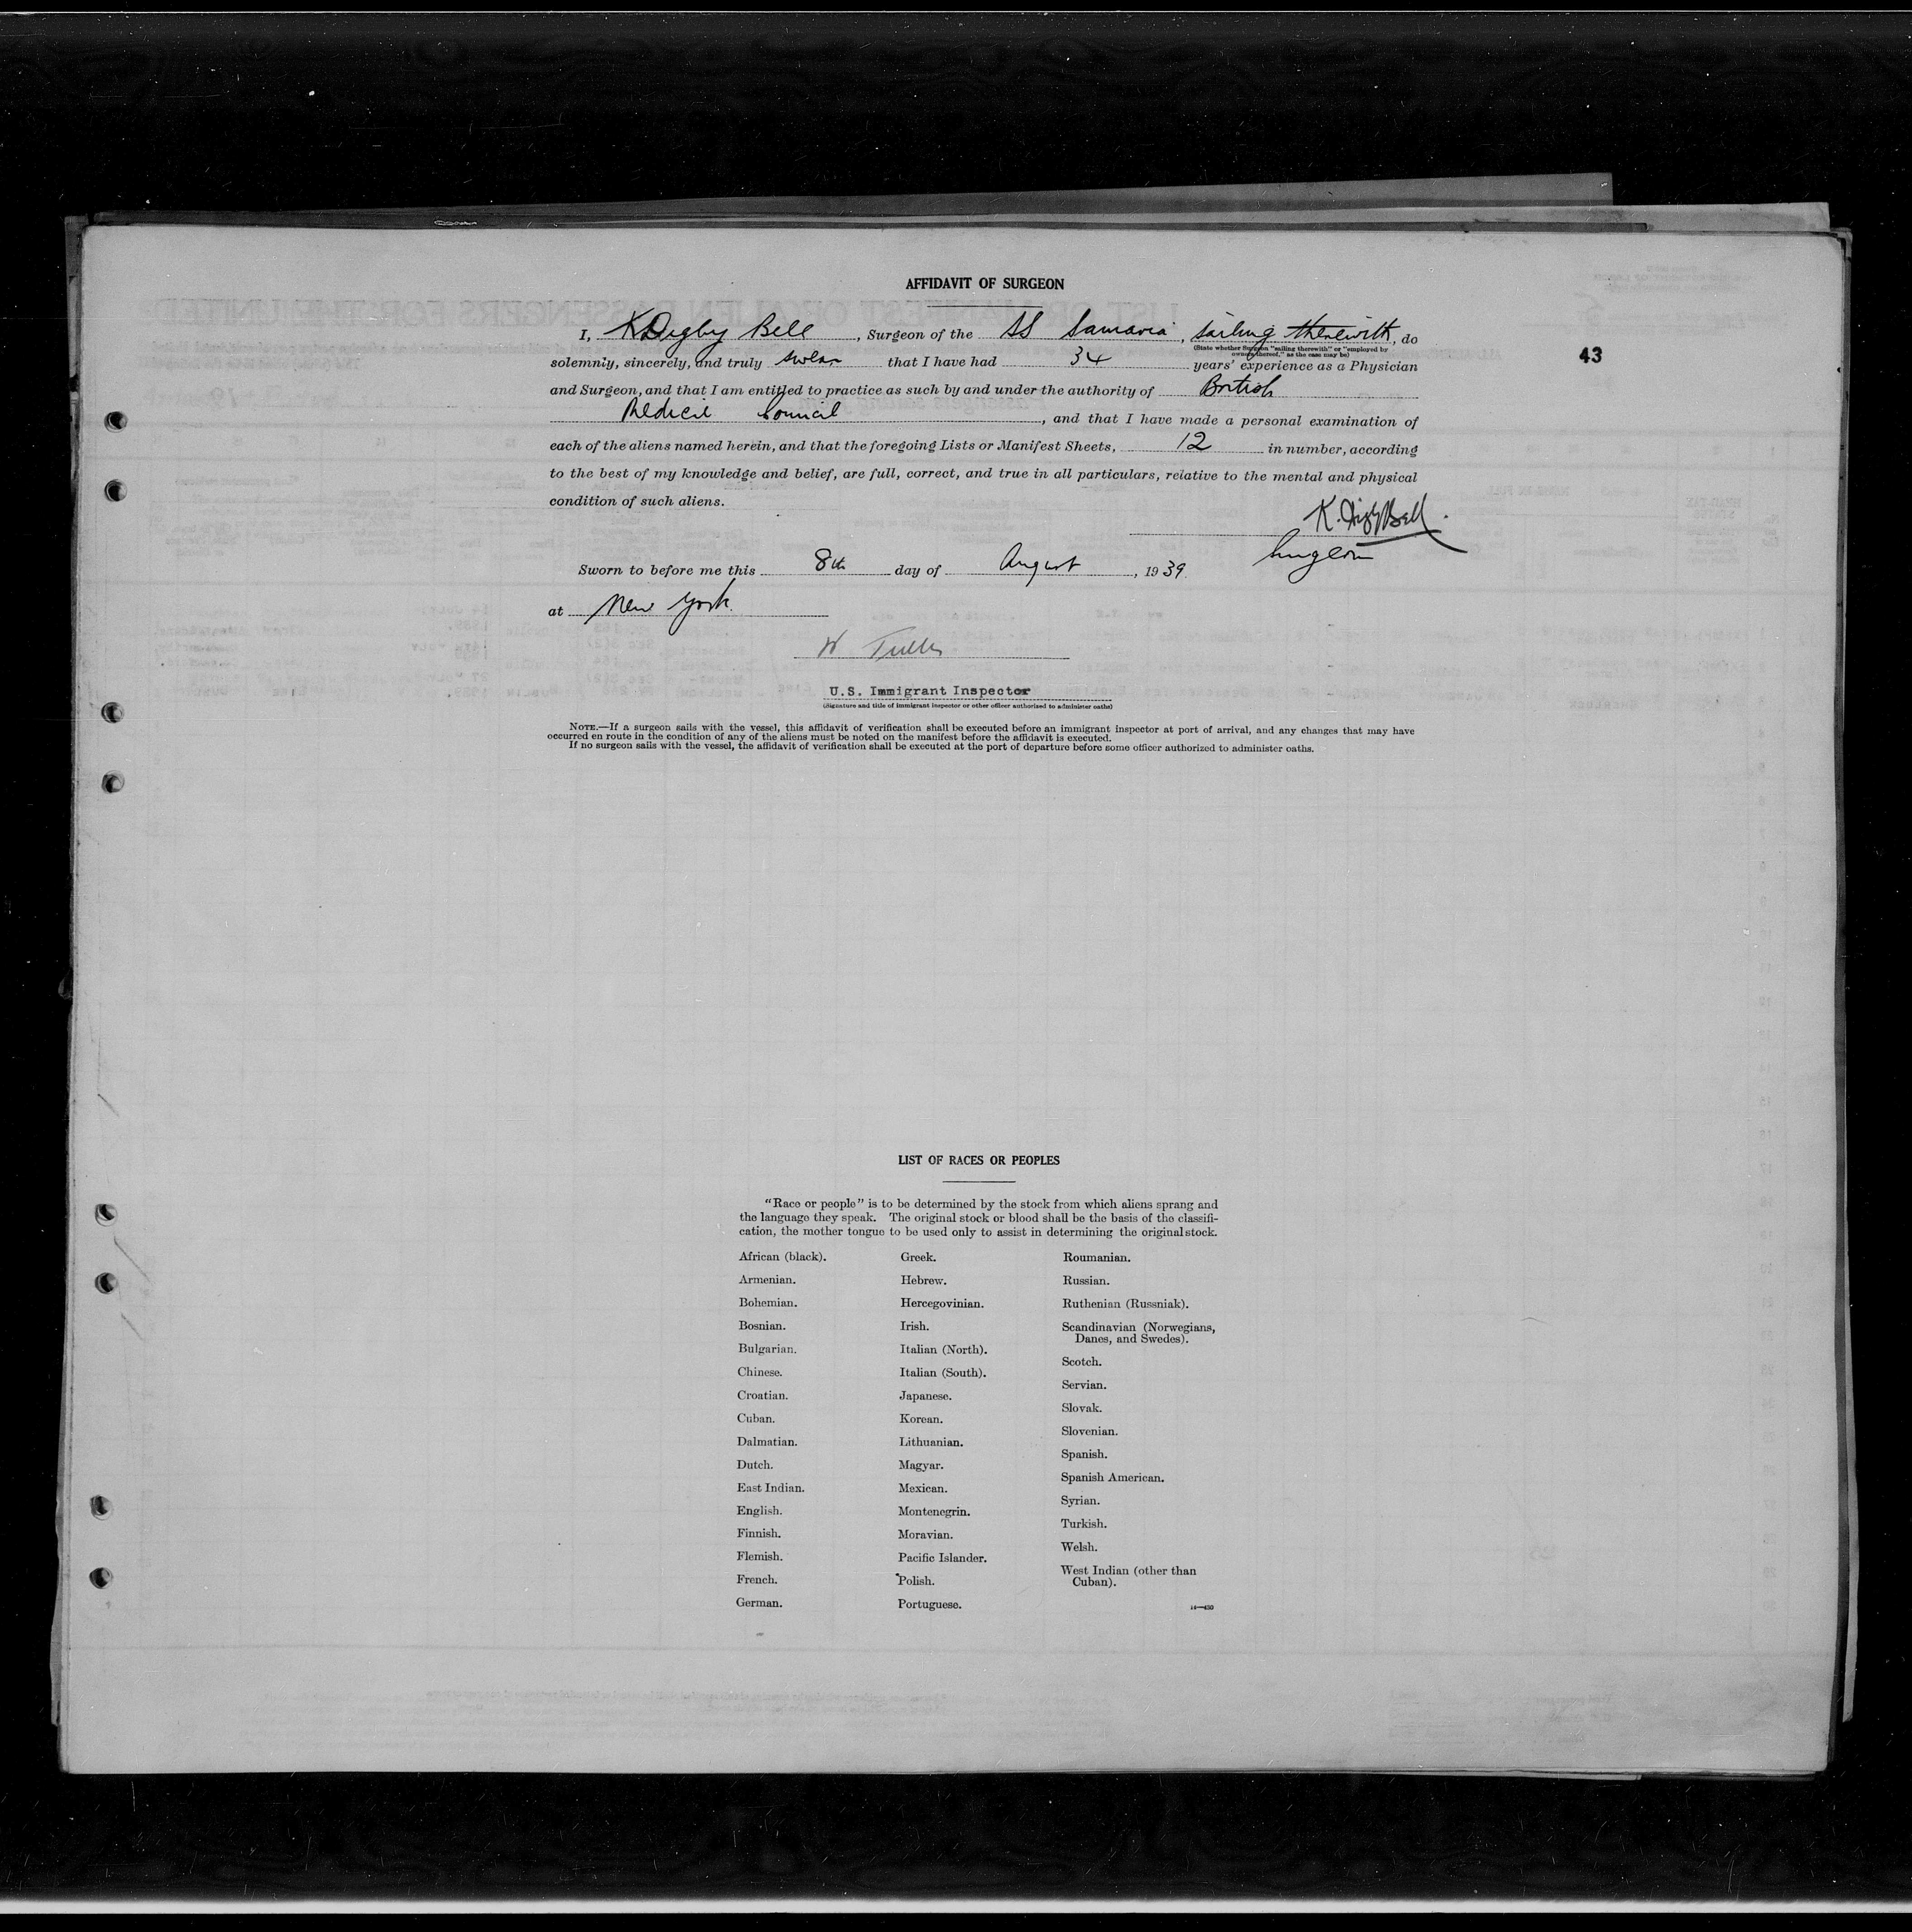 AFFIDAVIT OF SURGEON
I, K Digby Bell, Surgeon of the SS Samaria, sailing therewith, do
(State whether Surgeon "sailing therewith" or "employed by
owners thereof," as the case may be)
43
solemnly, sincerely, and truly swear that I have had 34 years' experience as a Physician
and Surgeon, and that I am entitled to practice as such by and under the authority of British
Medical Council, and that I have made a personal examination of
each of the aliens named herein, and that the foregoing Lists or Manifest Sheets, 12 in number, according
to the best of my knowledge and belief, are full, correct, and true in all particulars, relative to the mental and physical
condition of such aliens.
K. Digby Bell.
Surgeon
Sworn to before me this 8th day of August, 1939.
at New York.
W
U.S. Immigrant Inspector
(Signature and title of immigrant inspector or other officer authorized to administer oaths)
NOTE.—If a surgeon sails with the vessel, this affidavit of verification shall be executed before an immigrant inspector at port of arrival, and any changes that may have
occurred en route in the condition of any of the aliens must be noted on the manifest before the affidavit is executed.
If no surgeon sails with the vessel, the affidavit of verification shall be executed at the port of departure before some officer authorized to administer oaths.
LIST OF RACES OR PEOPLES
"Race or people" is to be determined by the stock from which aliens sprang and
the language they speak. The original stock or blood shall be the basis of the classifi-
cation, the mother tongue to be used only to assist in determining the original stock.
African (black).
Armenian.
Bohemian.
Bosnian.
Bulgarian.
Chinese.
Croatian.
Cuban.
Dalmatian.
Dutch.
East Indian.
English.
Finnish.
Flemish.
French.
German.
Greek.
Hebrew.
Hercegovinian.
Irish.
Italian (North).
Italian (South).
Japanese.
Korean.
Lithuanian.
Magyar.
Mexican.
Montenegrin.
Moravian.
Pacific Islander.
Polish.
Portuguese.
Roumanian.
Russian.
Ruthenian (Russniak).
Scandinavian (Norwegians,
Danes, and Swedes).
Scotch.
Servian.
Slovak.
Slovenian.
Spanish.
Spanish American.
Syrian.
Turkish.
Welsh.
West Indian (other than
Cuban).